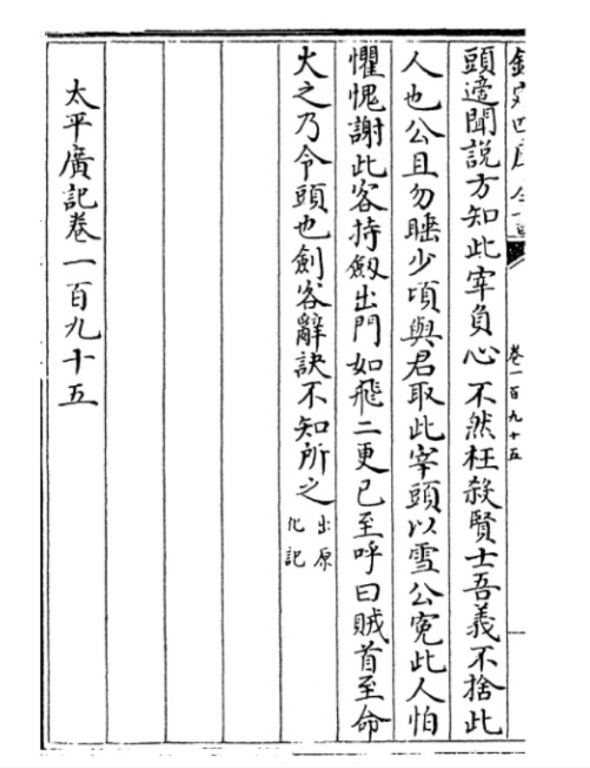 欽定四庫全書
卷一百九十五
頭適聞說方知此宰負心不然枉殺賢士吾義不捨此
人也公且勿睡少頃與君取此宰頭以雪公寃此人怕
懼愧謝此客持劔出門如飛二更已至呼曰賊首至命
火之乃令頭也劍客辭訣不知所之出原化記
太平廣記卷一百九十五